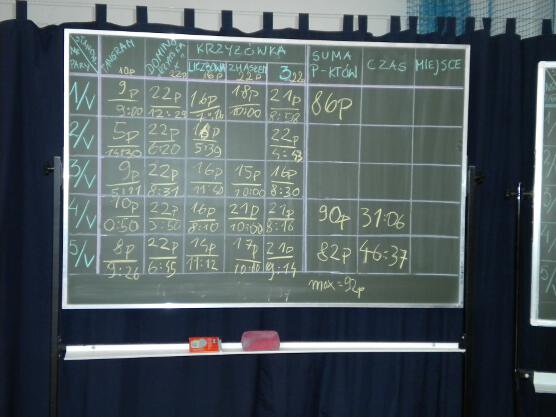 TANGRAM KRZYŻÓWKA SUMA P-KTÓW CZAS MIEJSCE
NR PARY LICZBOWA Z HASŁEM 3
10p 22p 16p 22p 22
1/V 9p 22p 16p 18p 21p 86p
9:00 10:00 8:58
2/V 5p 22p 22p
6:20 5:39
3/V 9p 22p 16p 15p 16p
8:31 10:00 8:30
4/V 10p 22p 16p 21p 21p 90p 31:06
0:50 3:50 8:10 10:00 8:16
5/V 8p 22p 14p 17p 21p 82p 46:37
9:26 6:45 11:12 10:00 9:14
max = 92p